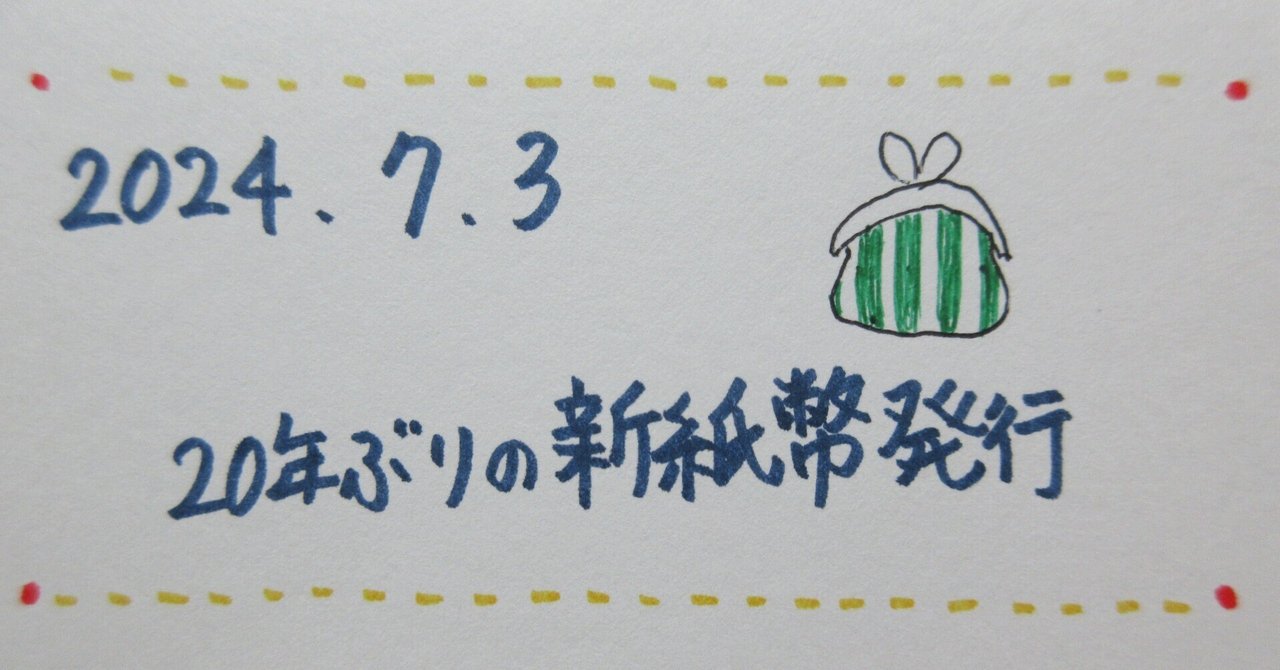 2024.7.3
20年ぶりの新紙幣発行